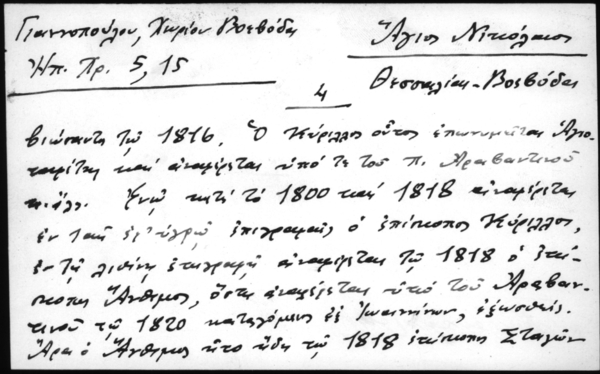 Γιαννοπούλου, Χωρίον Βοεβόδα
Ἠπ. Χρ. 5, 15
Ἅγιος Νικόλαος
Θεσσαλίας - Βοεβόδα
4
τῷ 1816. Ὁ Κύριλλος οὗτος ἐπονομάζεται
καὶ ἀναφέρεται ὑπό τε τοῦ Π. Ἀραβαντινοῦ
κ. ἄλλ. Ἐνῷ κατὰ τὸ 1800 καὶ 1818 ἀναφέρεται
ἐν ἐπιγραφαῖς ὁ ἐπίσκοπος Κύριλλος,
ἐν τῇ λιθίνῃ ἐπιγραφῇ ἀναφέρεται τῷ 1818 ὁ ἐπί-
σκοπος Ἄνθιμος, ὅστις ἀναφέρεται ὑπὸ τοῦ Ἀραβαν-
τινοῦ τῷ 1820 καταγόμενος ἐξ Ἰωαννίνων, ἐξωσθείς.
Ἄρα ὁ Ἄνθιμος ἦτο ἤδη τῷ 1818 ἐπίσκοπος Σταγῶν